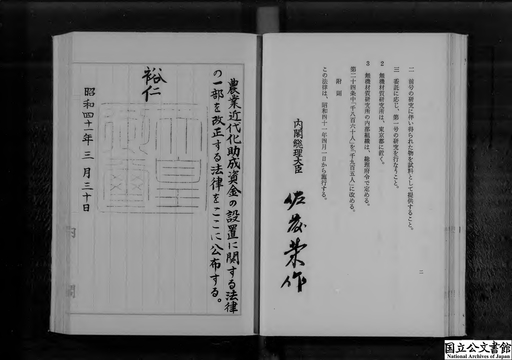 二 前号の研究に伴い得られた物を試料として提供すること。
三 委託に応じ、第一号の研究を行なうこと。
2 無機材質研究所は、東京都に置く。
3 無機材質研究所の内部組織は、総理府令で定める。
第二十四条中「千八百六十人」を「千九百五人」に改める。
附 則
この法律は、昭和四十一年四月一日から施行する。
内閣総理大臣
佐藤榮作
二
農業近代化助成資金の設置に関する法律
の一部を改正する法律をここに公布する。
裕仁
昭和四十一年三月三十日
国立公文書館
National Archives of Japan